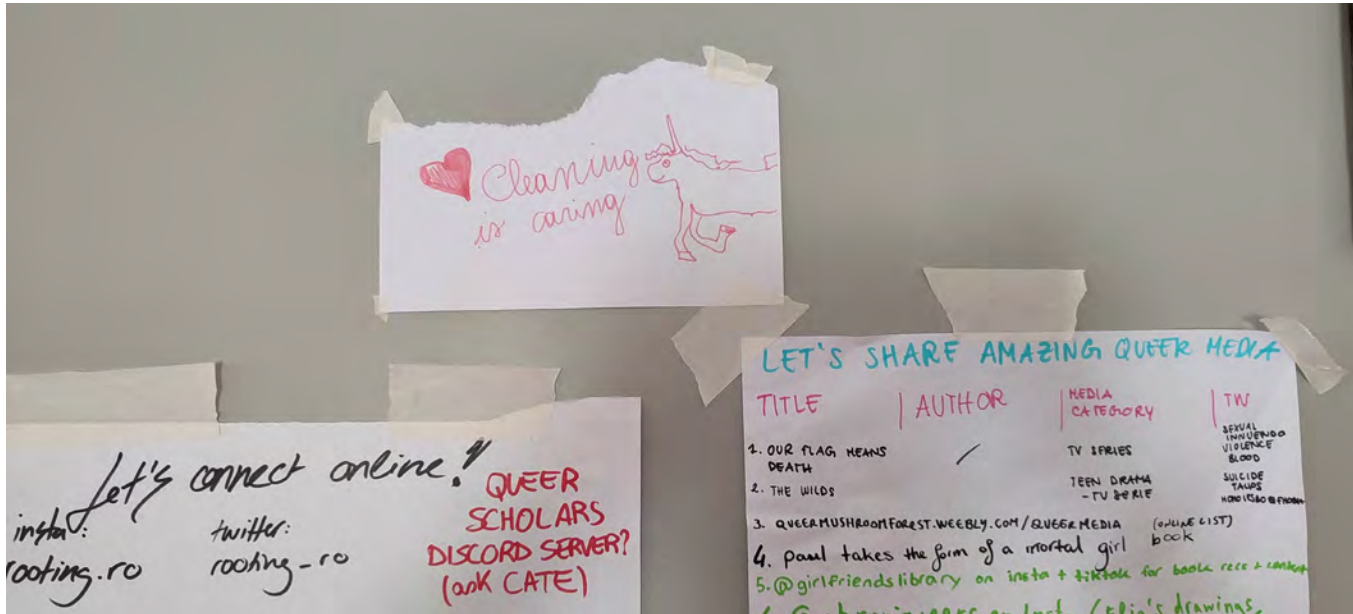 Cleaning
is caring
Let's connect online!
insta: twitter:
rooting.ro rooting_ro
QUEER
SCHOLARS
DISCORD SERVER?
(ask CATE)
LET'S SHARE AMAZING QUEER MEDIA
TITLE | AUTHOR | MEDIA CATEGORY | TW
1. OUR FLAG MEANS DEATH / TV SERIES SEXUAL INNUENDO VIOLENCE BLOOD
2. THE WILDS TEEN DRAMA - TV SERIE SUICIDE
3. QUEERMUSHROOMFOREST.WEEBLY.COM/QUEERMEDIA (ONLINE LIST)
4. paul takes the form of a mortal girl book
5. @girlfriendslibrary on insta + tiktok for book recs + content